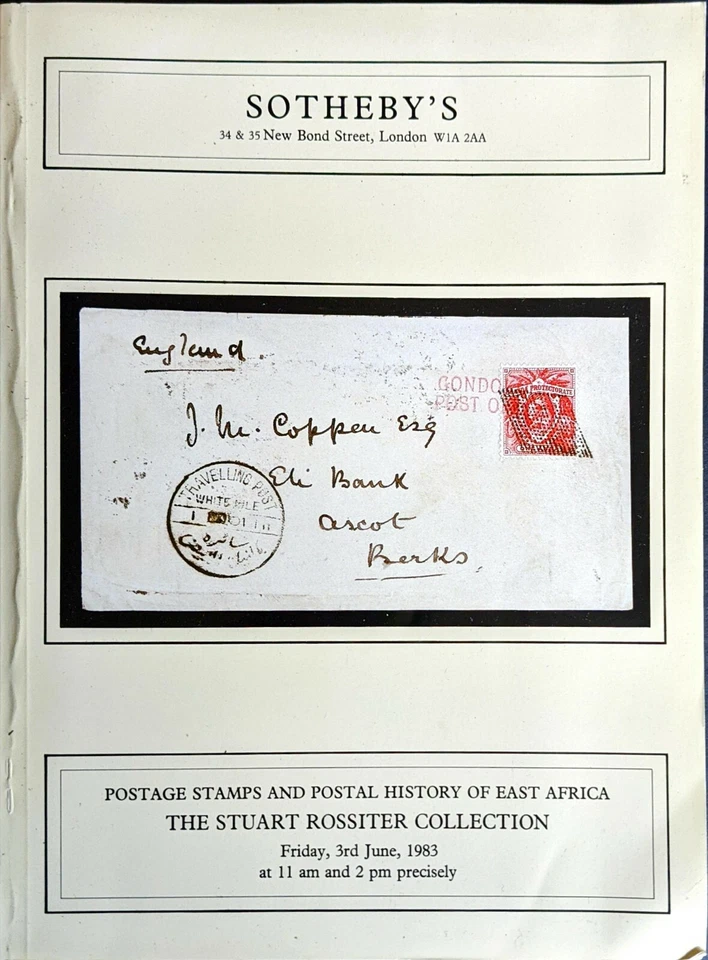 SOTHEBY'S
34 & 35 New Bond Street, London W1A 2AA
England
GONDO
POST O
PROTECTORATE
J. M. Coppen Esq
Eli Bank
Ascot
Berks
TRAVELLING POST
WHITE NILE
POSTAGE STAMPS AND POSTAL HISTORY OF EAST AFRICA
THE STUART ROSSITER COLLECTION
Friday, 3rd June, 1983
at 11 am and 2 pm precisely